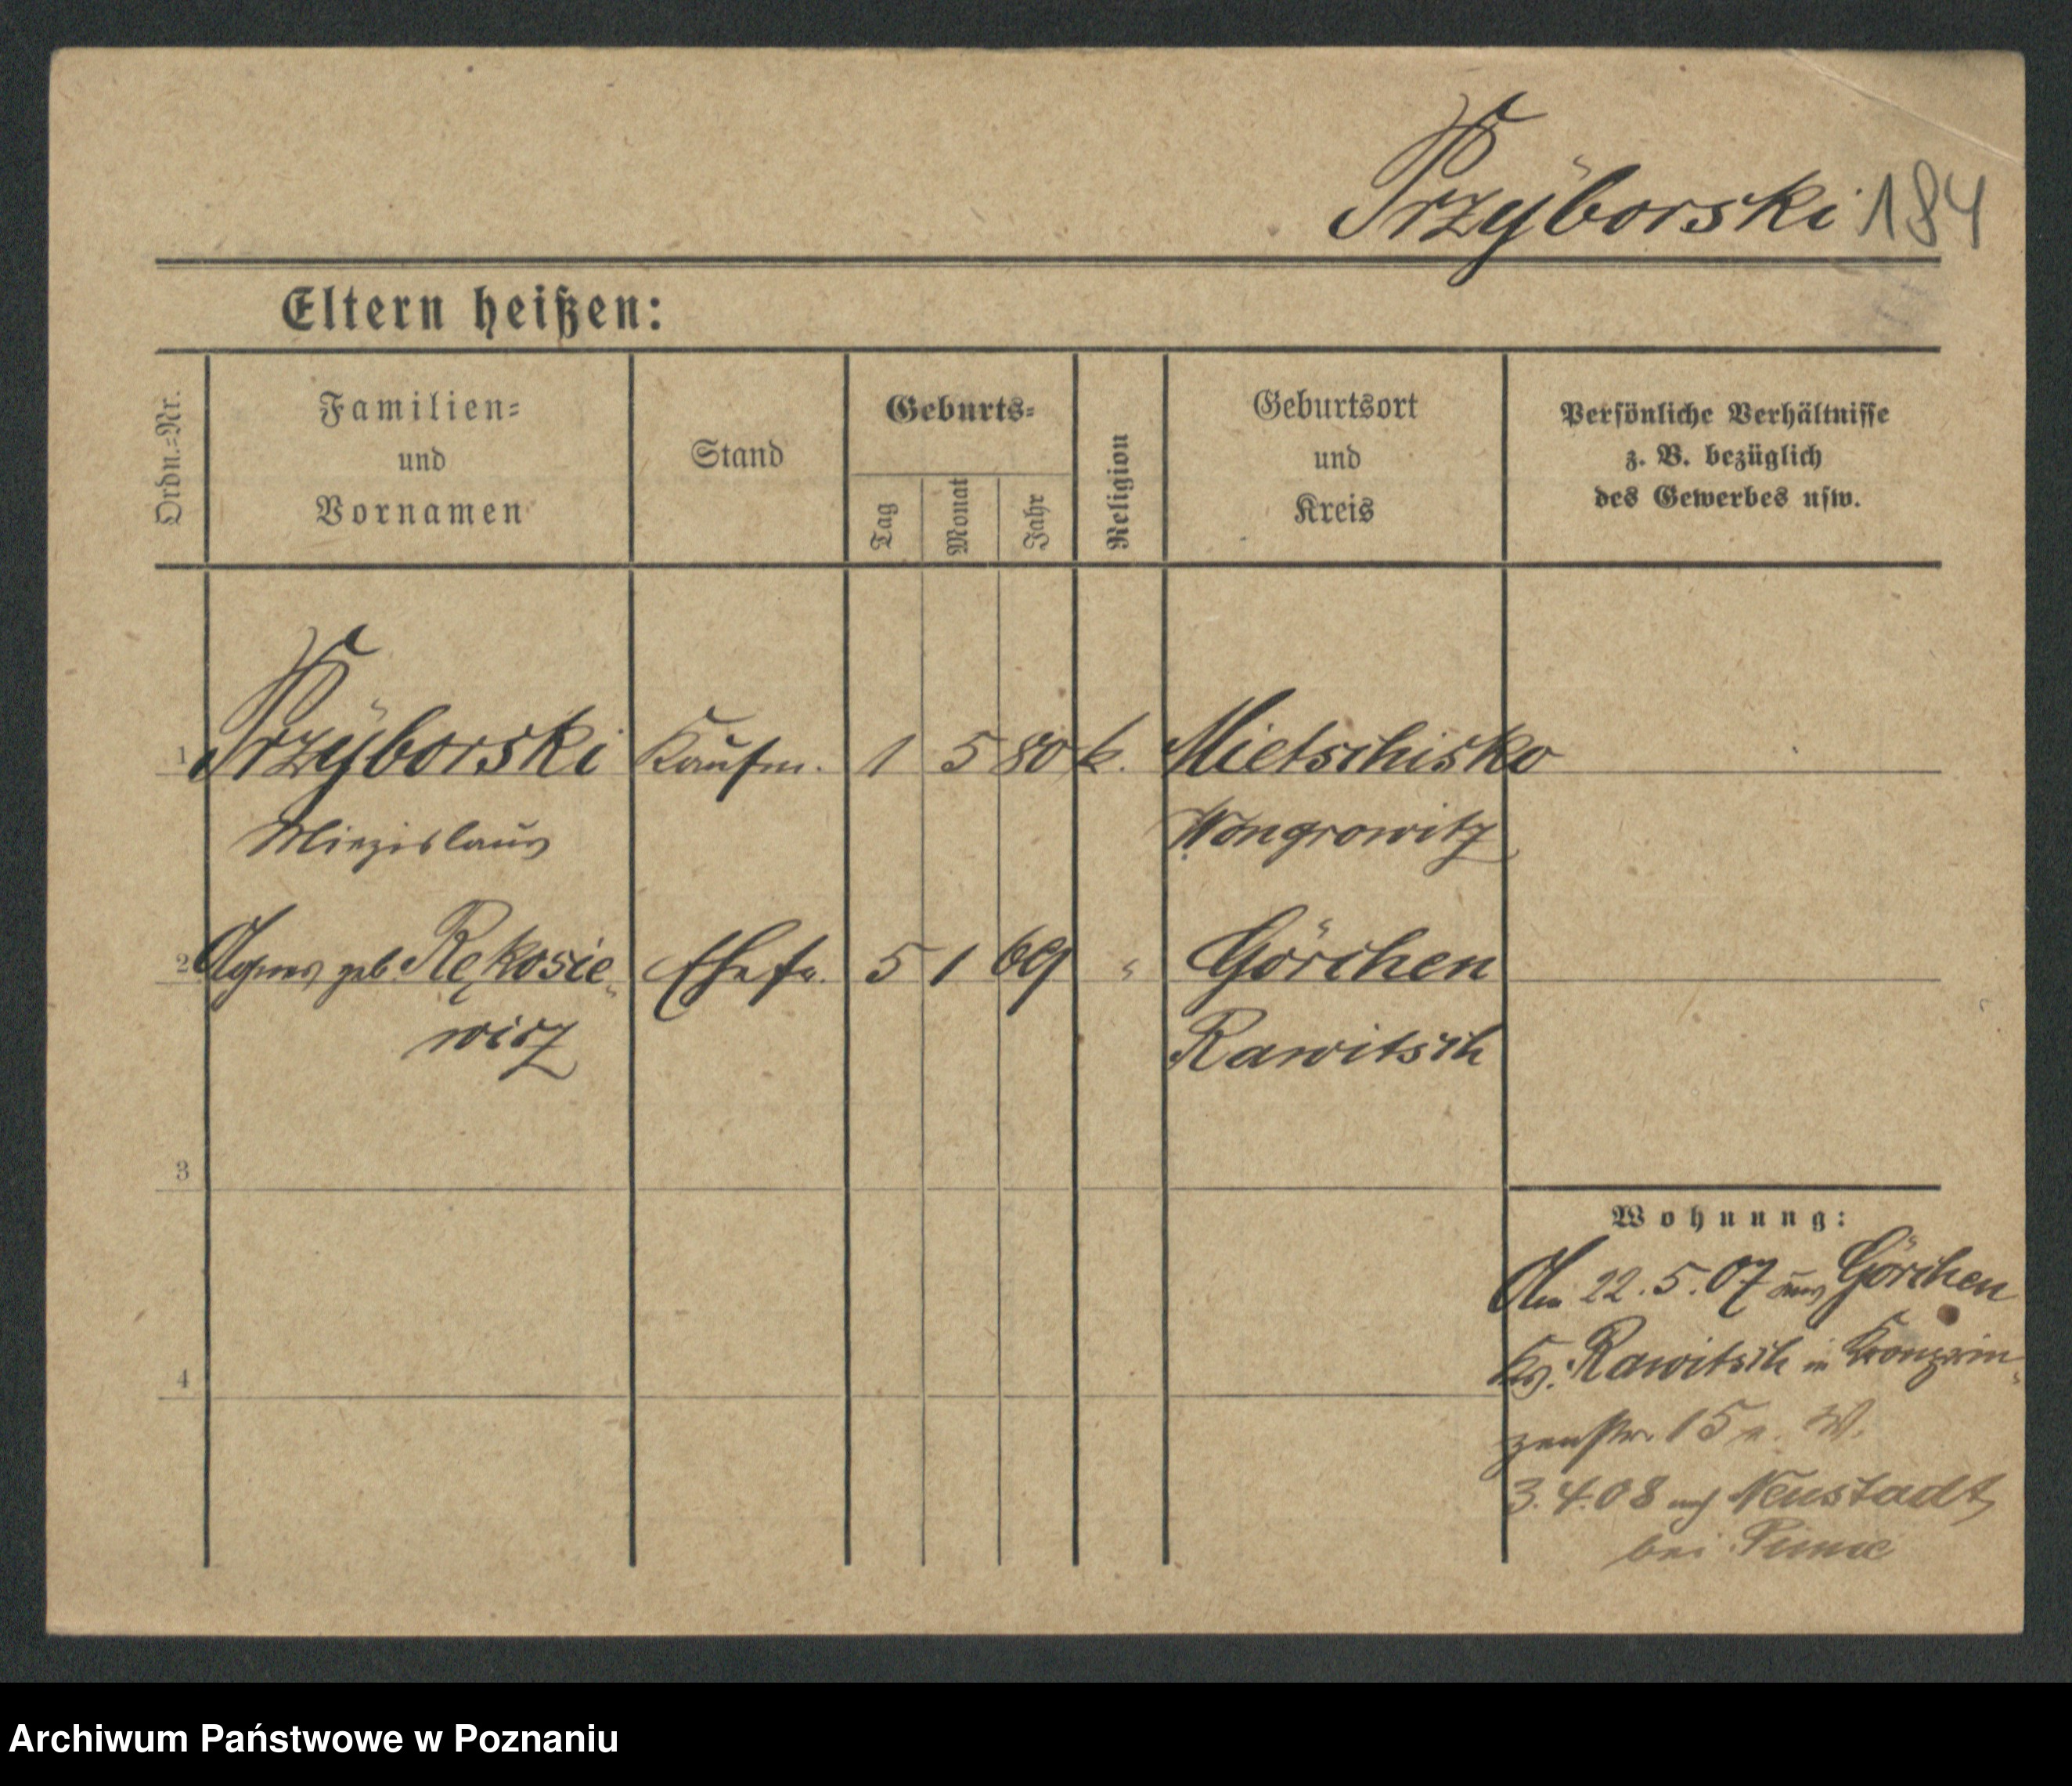 Przyborski 184
Eltern heißen:
Ordn.=Nr.
Familien=
und
Vornamen
Stand
Geburts=
Tag
Monat
Jahr
Religion
Geburtsort
und
Kreis
Persönliche Verhältnisse
z. B. bezüglich
des Gewerbes usw.
1 Przyborski Kaufm. 1 5 80 k. Mietschisko
Miezislaus Wongrowitz
2 Agnes geb. Rękosie- Ehefr. 5 1 69 " Görchen
wicz Rawitsch
3
4
Wohnung:
Am 22.5.07 aus Görchen
Krs. Rawitsch in Kronprin-
zenstr. 15 W.
3.4.08 nach Neustadt
bei Pinne
Archiwum Państwowe w Poznaniu